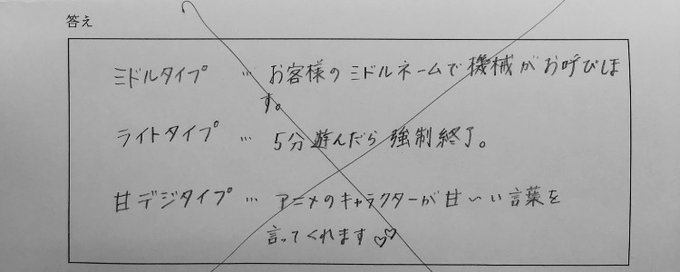 答え
ミドルタイプ … お客様のミドルネームで機械がお呼びしま
す。
ライトタイプ … 5分遊んだら強制終了。
甘デジタイプ … アニメのキャラクターが甘いい言葉を
言ってくれます♡♡